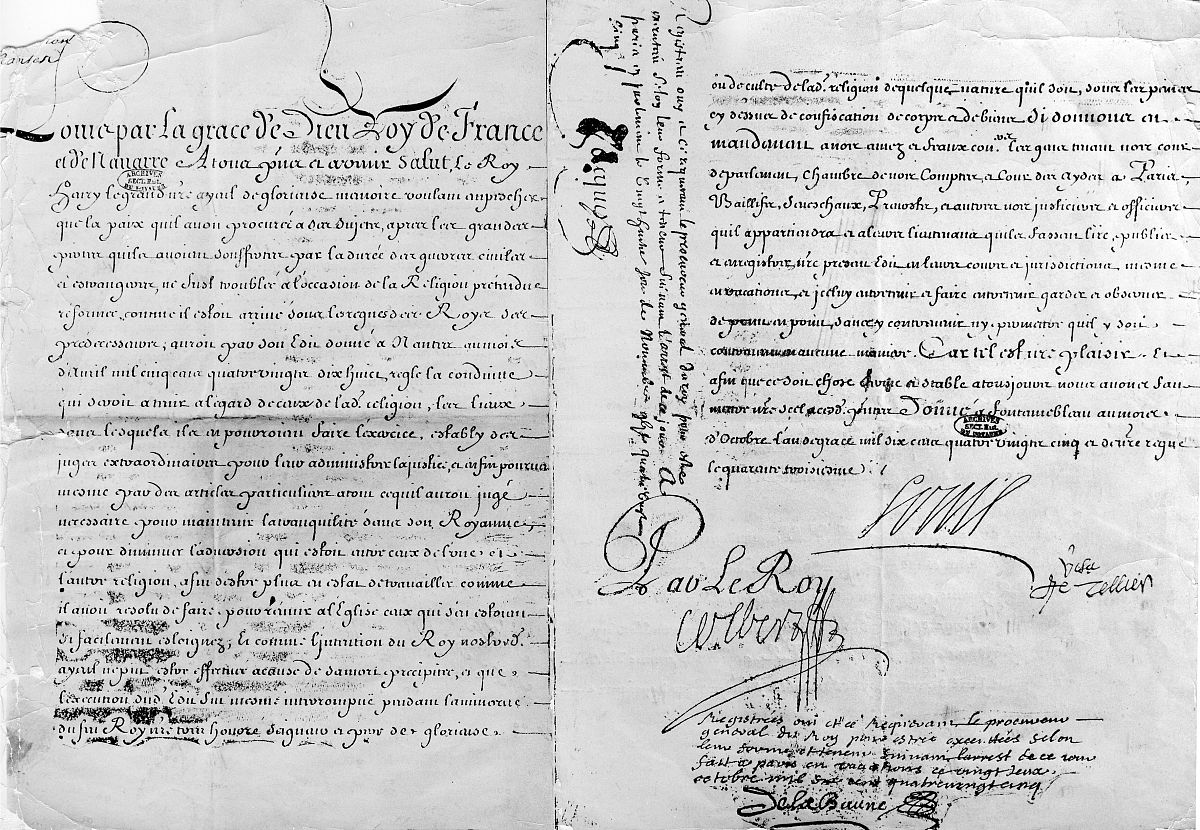 Louis par la grace de Dieu Roy de France
et de Navarre A tous p̃ns et avenir Salut, Le Roy
ARCHIVES
Henry le grand n̄re ayeul de glorieuse memoire voulant empescher
que la paix quil avoit procurée a ses Sujets, apres les grandes
pertes quils avoient Souffertes par la durée des guerres civiles
et estrangeres, ne fust troublée à l'occasion de la Religion pretendue
reformée, comme il estoit arrivé sous les regnes des Roys ses
predecesseurs, auroit par son Edit donné à Nantes au mois
d'Avril mil cinq cens quatre vingts dix huict, reglé la conduitte
qui seroit a tenir a l'égard de ceux de lad. religion, les lieux
dans lesquels ils en pourroient faire l'exercice, estably des
juges extraordinaires pour leur administrer la justice, et enfin pourveu
mesme par des articles particuliers a tout ce quil auroit jugé
necessaire pour maintenir la tranquilité dans son Royaume,
et pour diminuer l'aversion qui estoit entre ceux de l'une et
l'autre religion, afin d'estre plus en estat de travailler comme
il avoit resolu de faire, pour reunir a l'Eglise ceux qui s'en estoient
si facilement esloignez; Et comme l'intention du Roy nostred.
ayeul ne put estre effectuée a cause de sa mort precipitée, et que
l'execution dud. Edit fut mesme interrompuë pendant la minorité
du feu Roy n̄re tres honoré Seigneur et pere de glorieuse
Registrées ouy et ce requerant le procureur general du roy pour estre
executées selon leur forme et teneur suivant l'arrest de ce jour A
paris en parlement le
Novembre
cinq
Jacques
ou de culte de lad. religion de quelque nature quil soit, sous les peines
cy dessus de confiscation de corps et de biens Si donnons en
mandement a nos amez et feaux con.ers les gens tenant nos cours
de parlement, Chambre de nos Comptes, et Cour des Aydes a Paris,
Baillifs, Seneschaux, Prevosts, et autres nos justiciers et officiers
quil appartiendra et a leurs lieutenans quils fassent lire, publier
et enregistrer n̄re present Edit en leurs cours et jurisdictions mesme
en vacations, et iceluy entretenir et faire entretenir garder et observer
de point en point, sans y contrevenir ny permettre quil y soit
contrevenu en aucune maniere. Car tel est n̄re plaisir. Et
afin que ce soit chose ferme et stable a tousjours nous avons fait
mettre n̄re scel a cesd. p̃ntes Donné a Fontainebleau au mois
ARCHIVES
d'Octobre l'an de grace mil six cens quatre vingts cinq et de n̄re regne
le quarante troisiesme
Louis
Visa
Le Tellier
Par Le Roy
Colbert
Registrées oui et ce requerant le procureur
general du Roy pour estre executées selon
leur forme et teneur suivant l'arrest de ce jour
fait a paris en vacations ce vingt deux
octobre mil six cens quatrevingt cinq
De la Baune